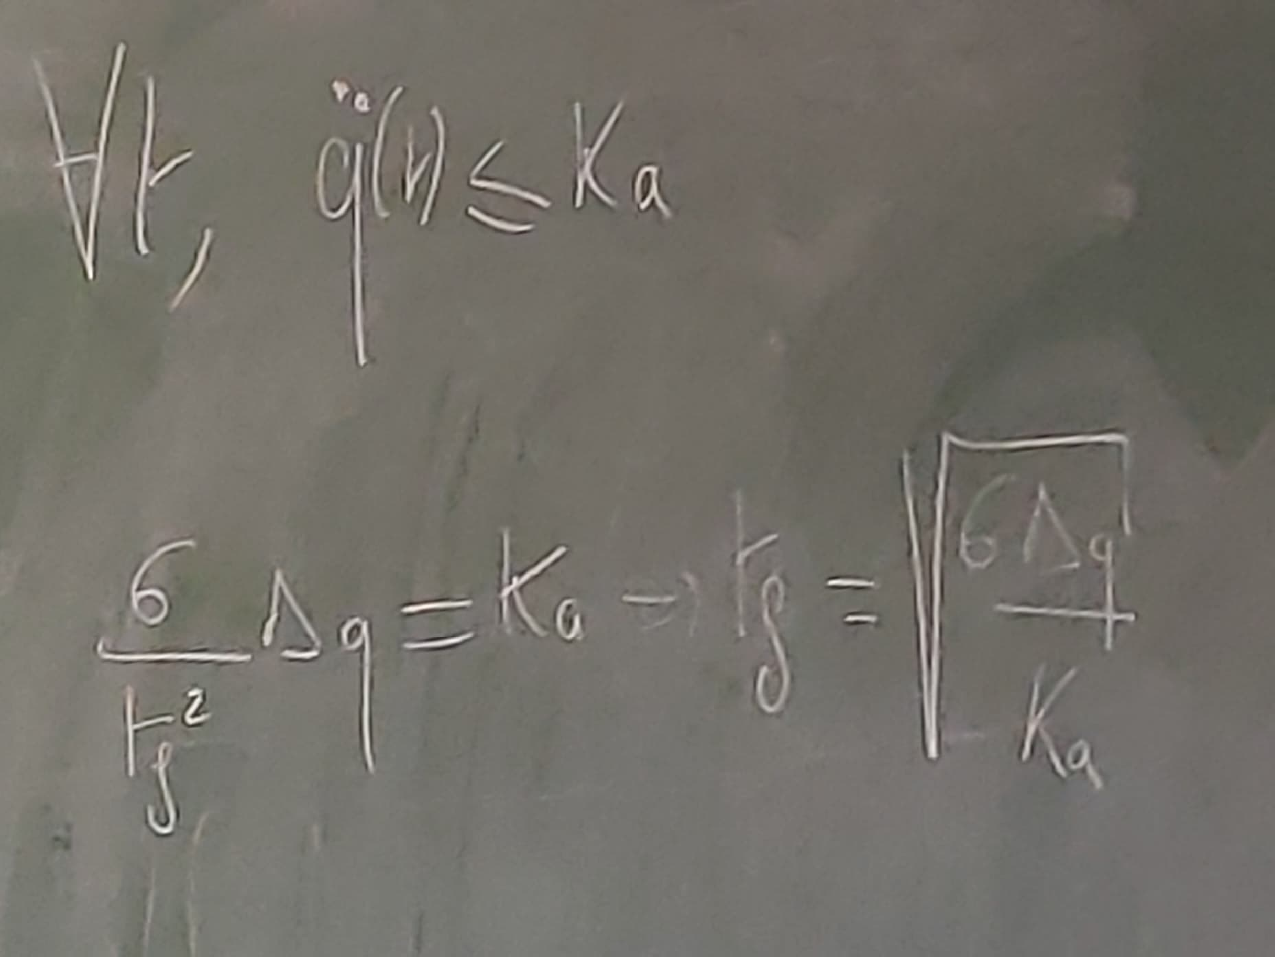 ∀t, q̈(t) ≤ Ka
6/tf² Δq = Ka → tf = √(6Δq/Ka)